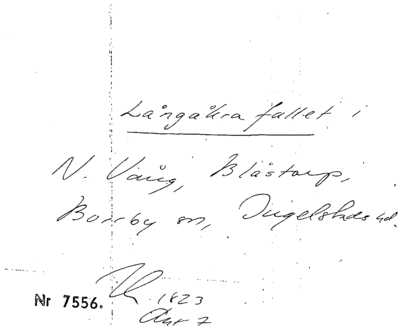 Långåkra fallet i
N. Vång, Blästorp,
Borrby sn, Ingelstads hd.
1823
Nr 7556.
Akt 7